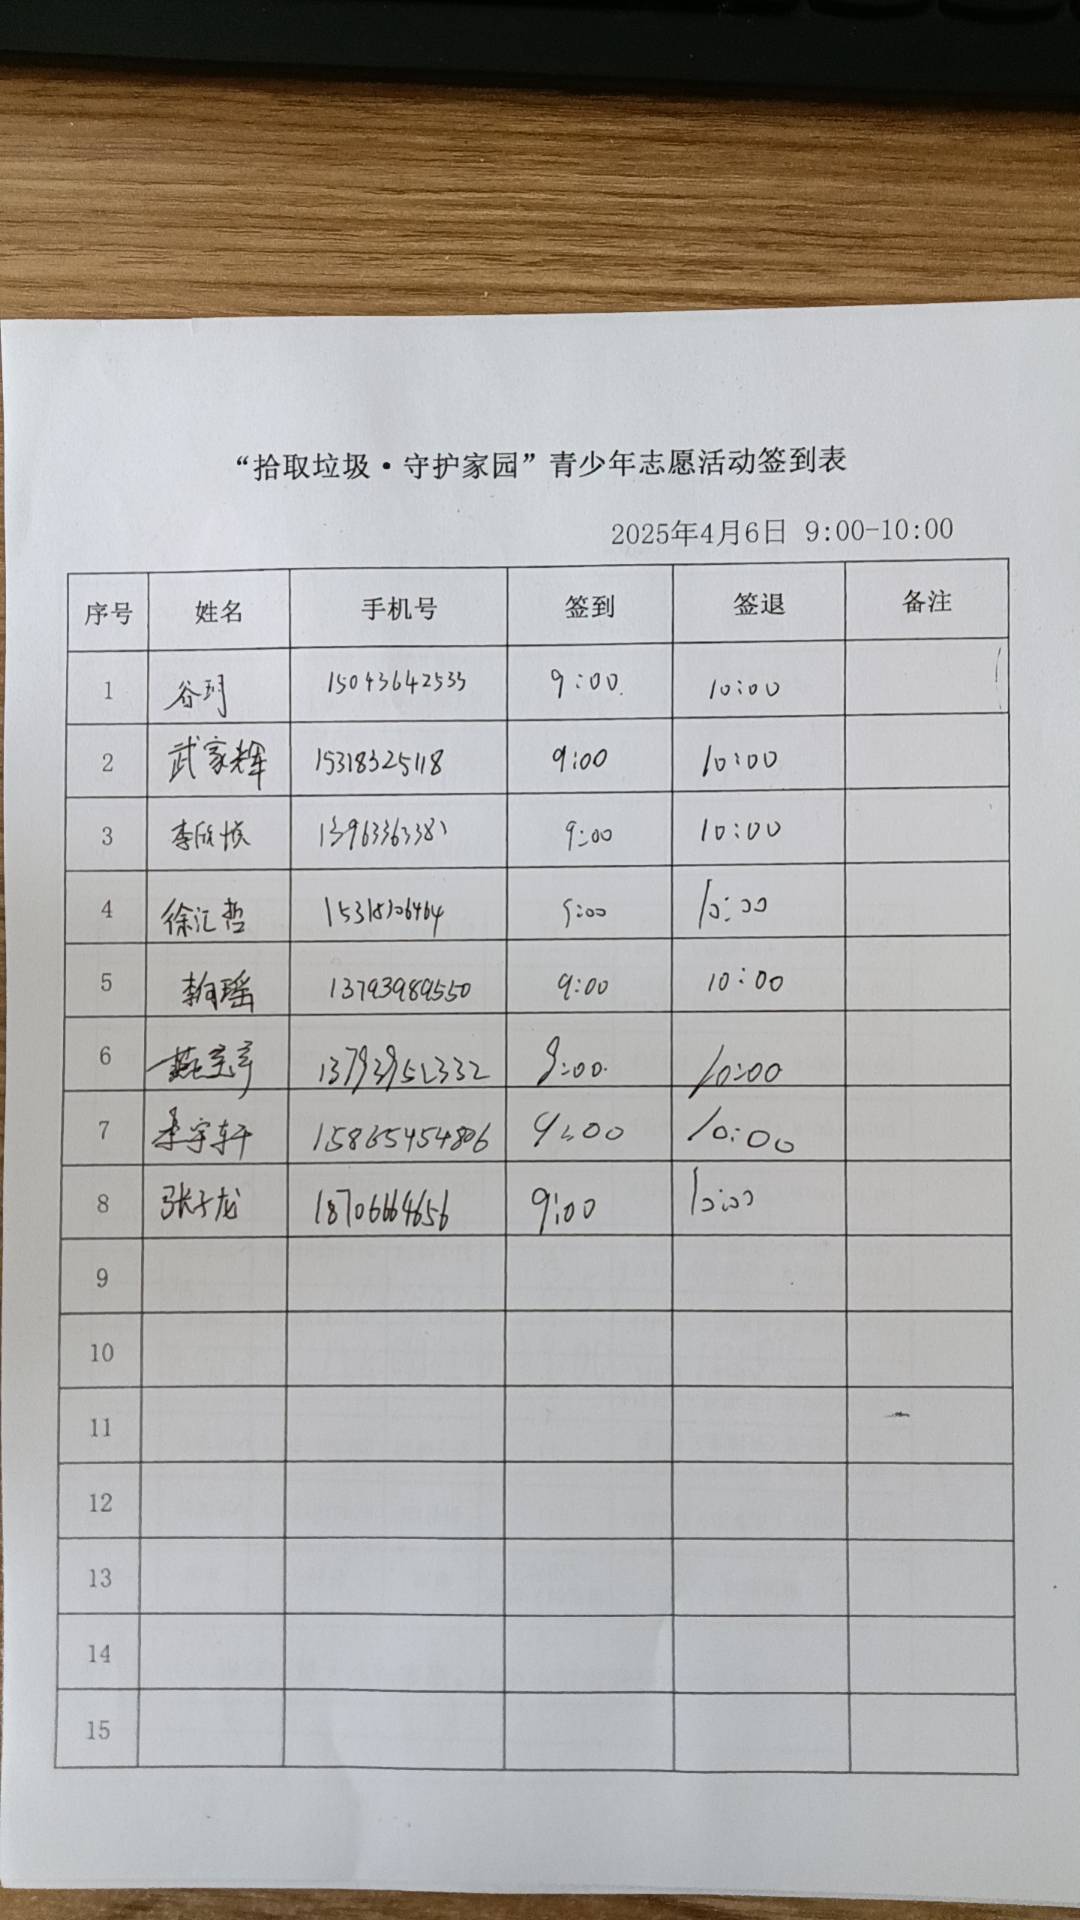 “拾取垃圾·守护家园”青少年志愿活动签到表
2025年4月6日 9:00-10:00
序号 姓名 手机号 签到 签退 备注
1 谷 15043642533 9:00 10:00
2 武家辉 15318325118 9:00 10:00
3 李欣 13963363381 9:00 10:00
4 徐汇哲 15318106464 9:00 10:00
5 瑶 13793989550 9:00 10:00
6 13793952332 9:00 10:00
7 李宇轩 15865454806 9:00 10:00
8 张子龙 18706664656 9:00 10:00
9
10
11
12
13
14
15